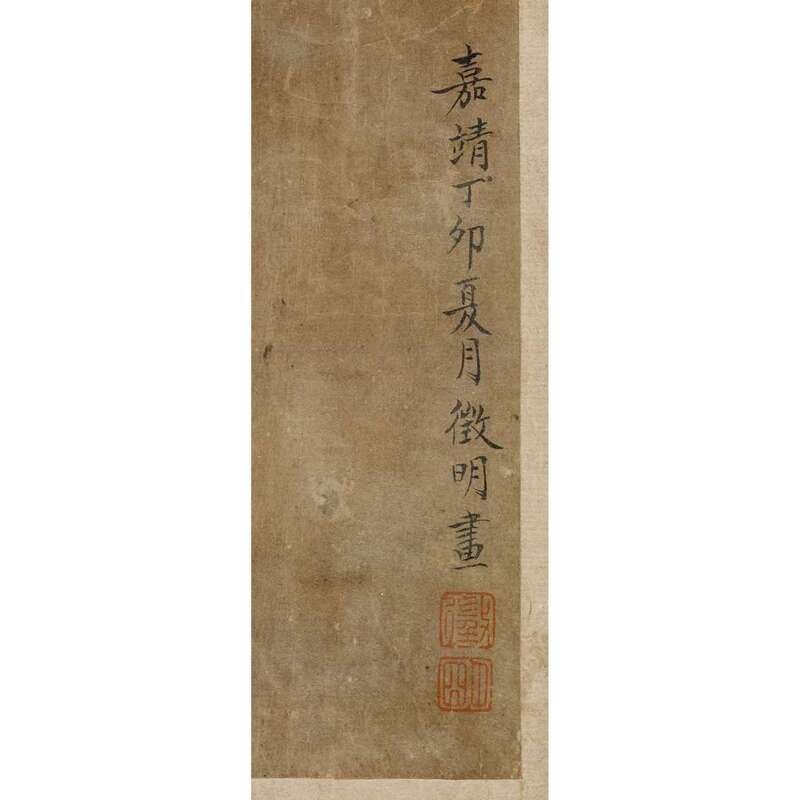 嘉靖丁卯夏月徵明畫
徵
明